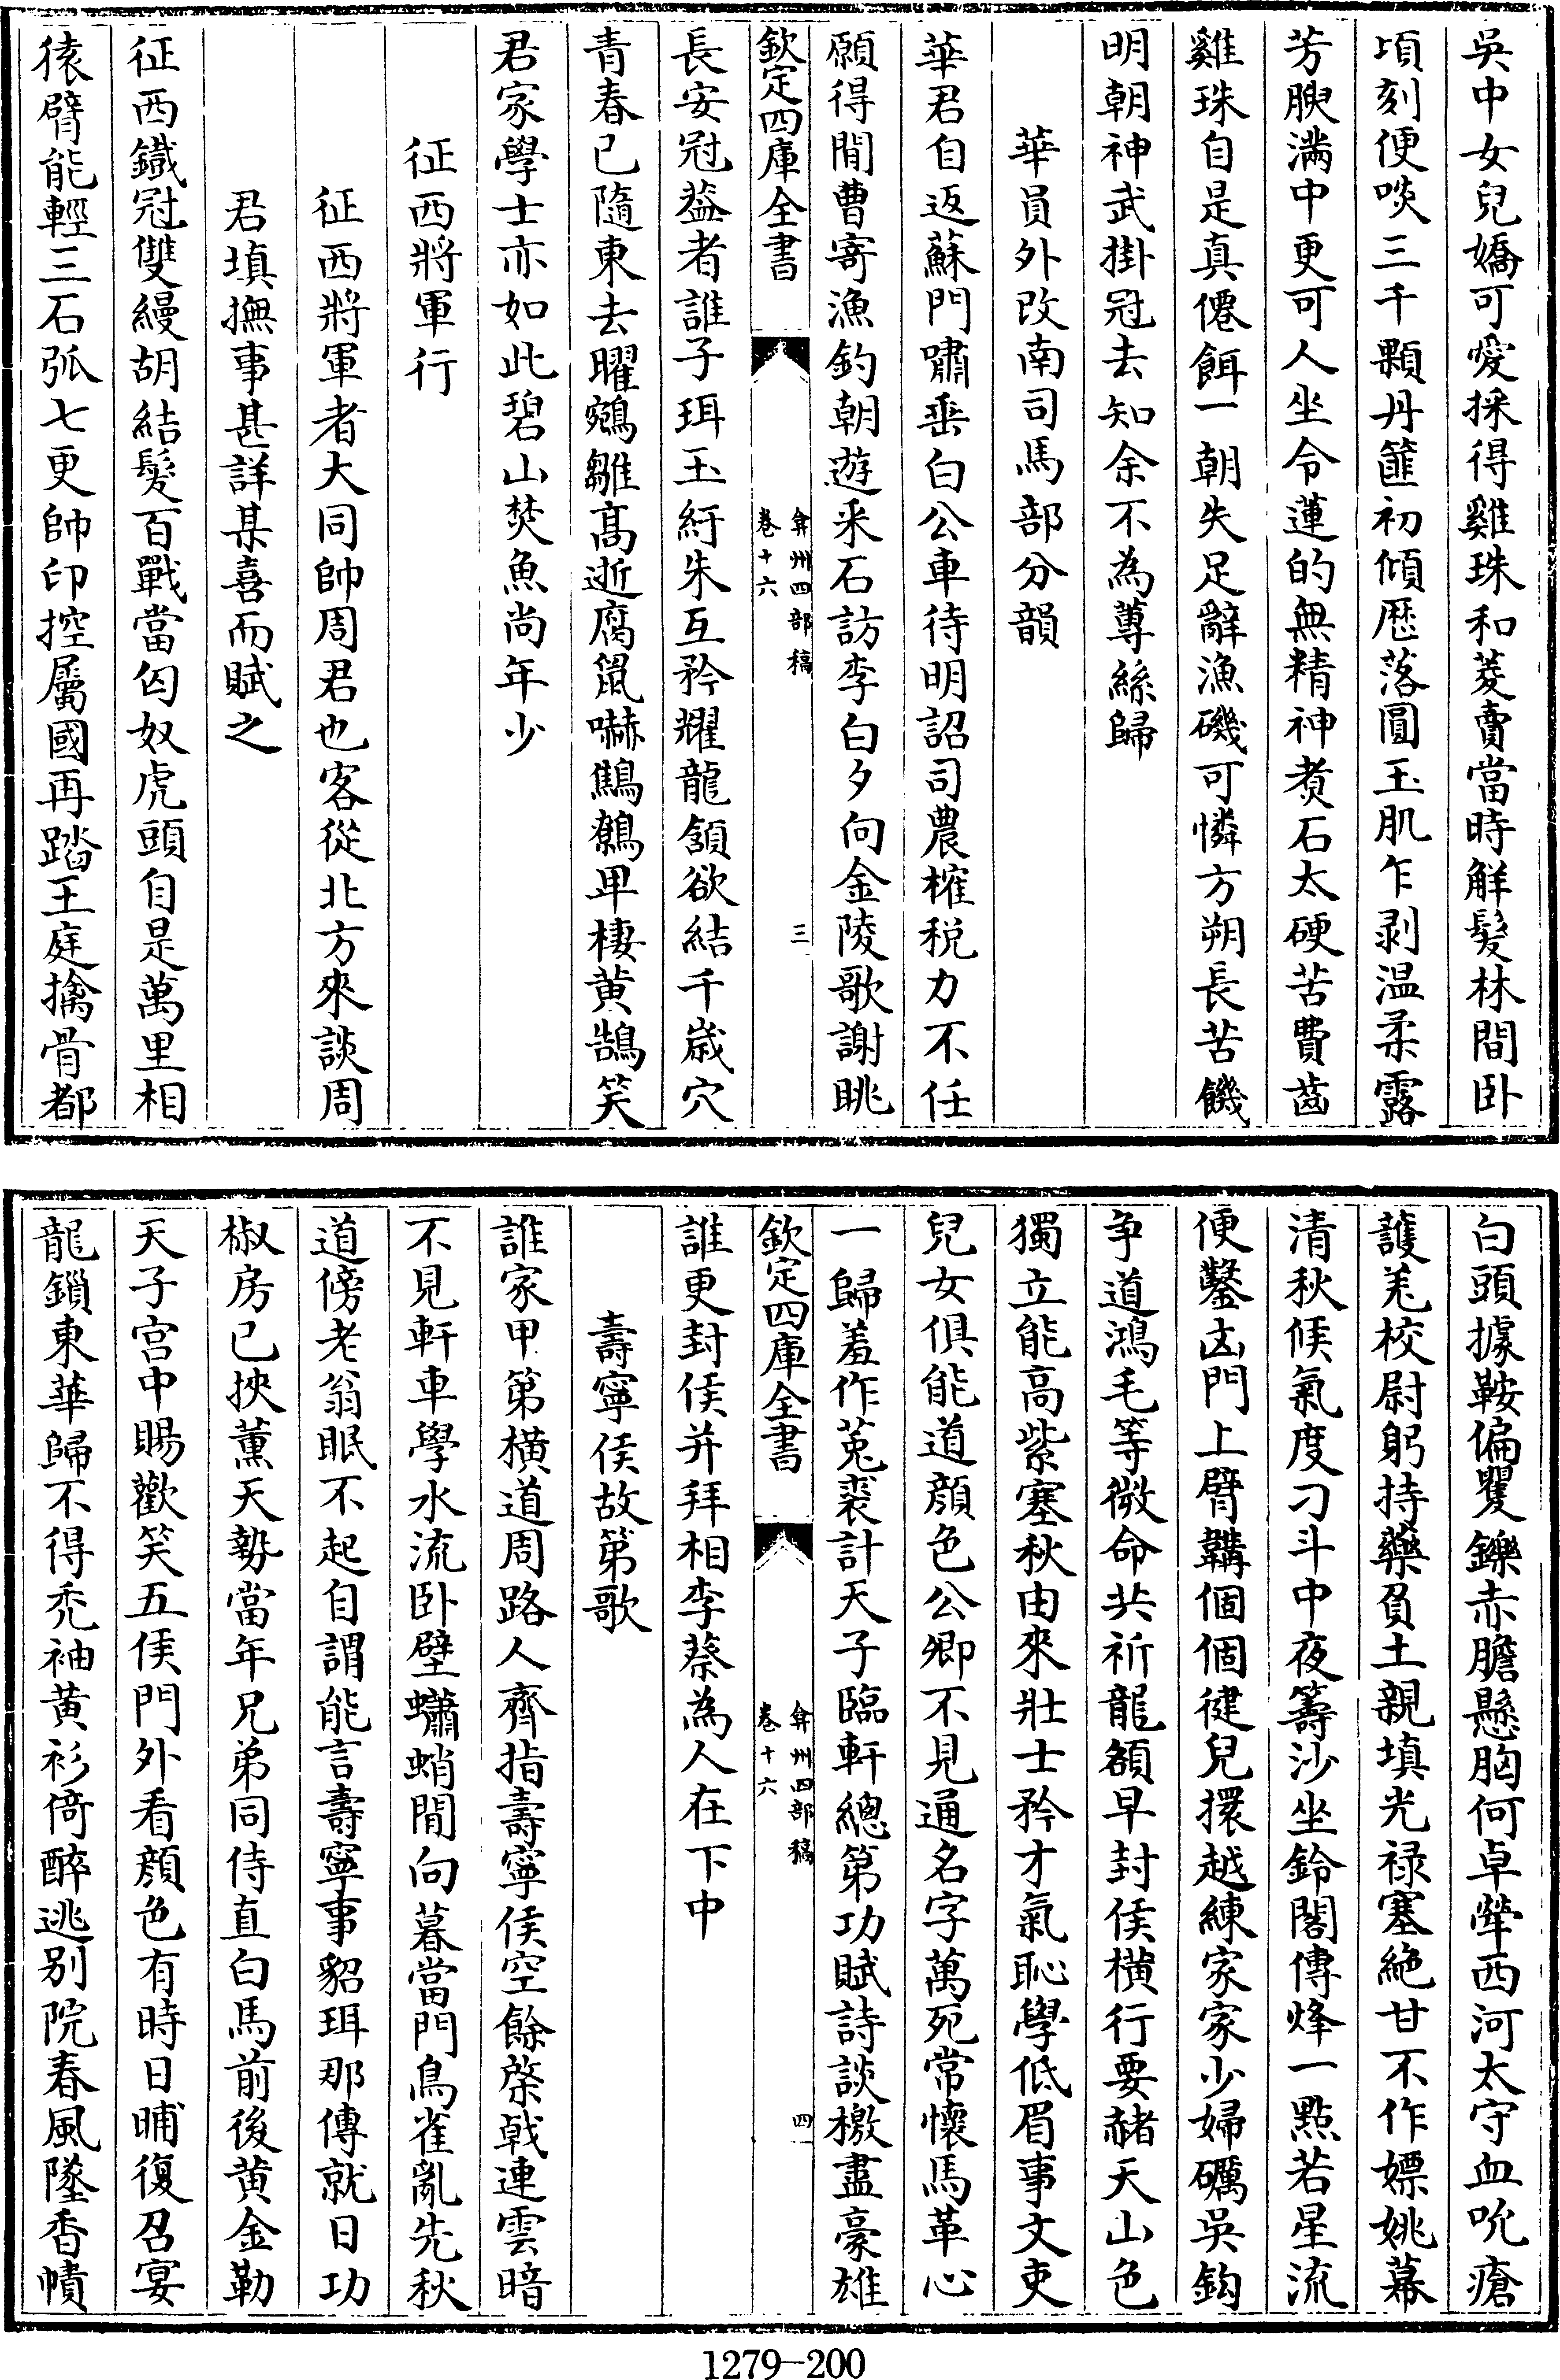 吳中女兒嬌可愛採得雞珠和菱賣當時觧髮林間卧
頃刻便啖三千顆丹篚初傾歴落圓玉肌乍剥温柔露
芳腴滿中更可人坐令蓮的無精神煑石太硬苦費齒
雞珠自是真僊餌一朝失足辭漁磯可憐方朔長苦饑
明朝神武掛冠去知余不為蓴絲歸
華員外改南司馬部分韻
華君自返蘇門嘯垂白公車待明詔司農榷税力不任
願得閒曹寄漁釣朝遊采石訪李白夕向金陵歌謝眺
欽定四庫全書
弇州四部稿
卷十六
三
長安冠葢者誰子珥玉紆朱互矜耀龍頷欲結千歳穴
青春已隨東去曜鵷雛髙逝腐鼠嚇鷦鷯卑棲黄鵠笑
君家學士亦如此碧山焚魚尚年少
征西將軍行
征西將軍者大同帥周君也客從北方來談周
君填撫事甚詳某喜而賦之
征西鐡冠雙縵胡結髮百戰當匈奴虎頭自是萬里相
猿臂能輕三石弧七更帥印控屬國再踏王庭擒骨都
白頭據鞍偏矍鑠赤膽懸胸何卓犖西河太守血吮瘡
護羌校尉躬持藥負土親填光禄塞絶甘不作嫖姚幕
清秋候氣度刁斗中夜籌沙坐鈴閣傳烽一點若星流
便鑿凶門上臂韝個個健兒擐越練家家少婦礪吳鈎
争道鴻毛等微命共祈龍額早封侯横行要赭天山色
獨立能高紫塞秋由來壯士矜才氣恥學低眉事文吏
兒女俱能道顔色公卿不見通名字萬死常懷馬革心
一歸羞作莵裘計天子臨軒總第功賦詩談檄盡豪雄
欽定四庫全書
弇州四部稿
卷十六
四
誰更封侯并拜相李蔡為人在下中
壽寧侯故第歌
誰家甲第横道周路人齊指壽寧侯空餘棨戟連雲暗
不見軒車學水流卧壁蠨蛸閒向暮當門鳥雀亂先秋
道傍老翁眠不起自謂能言壽寧事貂珥那傳就日功
椒房已挾薰天勢當年兄弟同侍直白馬前後黄金勒
天子宫中賜歡笑五侯門外看顔色有時日晡復召宴
龍鎻東華歸不得禿袖黄衫倚醉逃别院春風墜香幘
1279—200